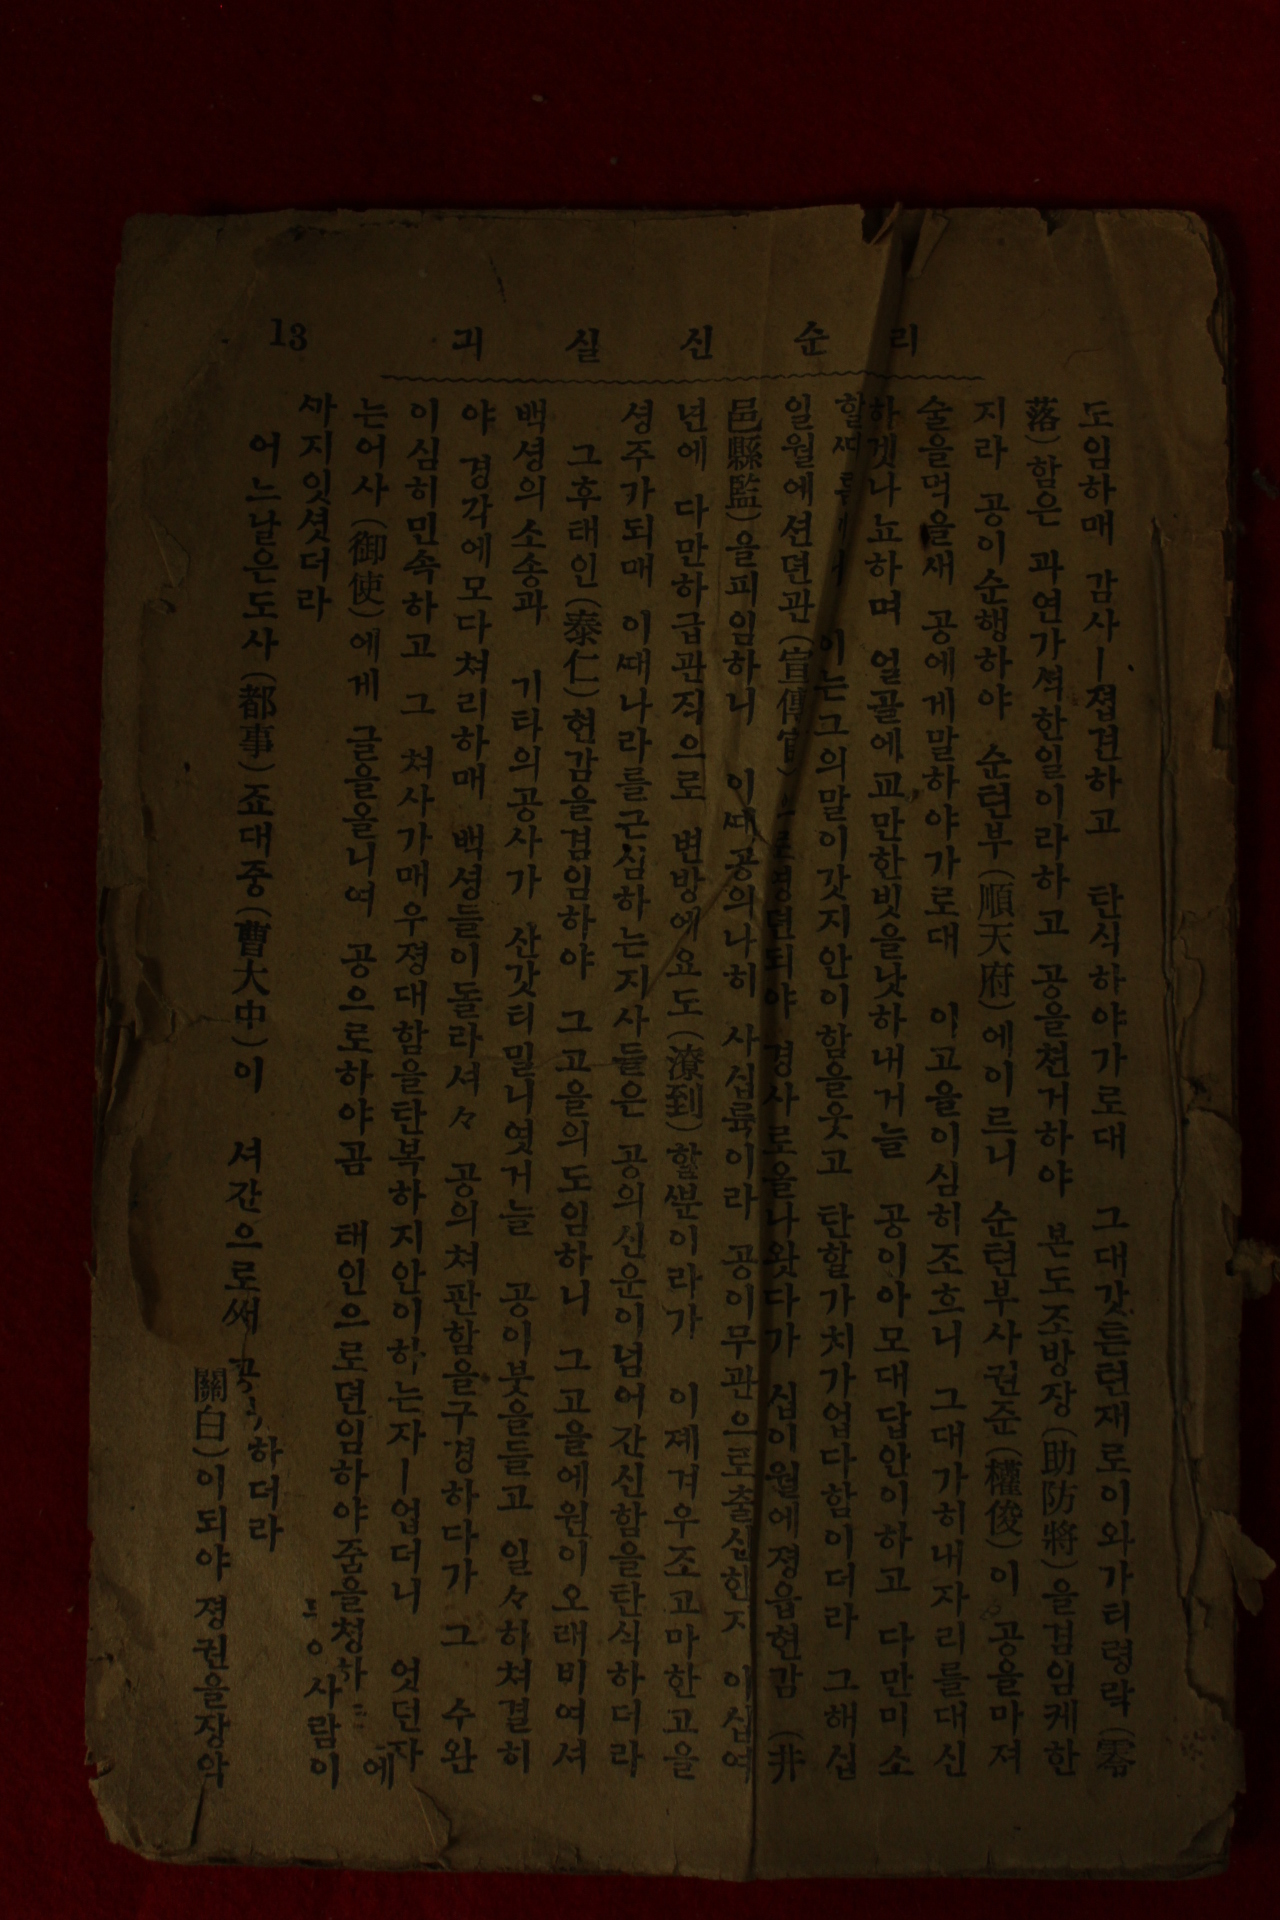 리순신실긔 13
도임하매 감사ㅣ졉견하고 탄식하야가로대 그대갓흔텬재로이와가티령락(零
落)함은 과연가셕한일이라하고 공을쳔거하야 본도조방장(助防將)을겸임케한
지라 공이순행하야 순텬부(順天府)에이르니 순텬부사권쥰(權俊)이 공을마져
술을먹을새 공에게말하야가로대 이고을이심히조흐니 그대가히내자리를대신
하겟나뇨하며 얼골에교만한빗을낫하내거늘 공이아모대답안이하고 다만미소
할ᄯᅡ름 이는그의말이갓지안이함을웃고 탄할가치가업다함이더라 그해십
일월에션뎐관(宣傳官) 되야 경사로올나왓다가 십이월에졍읍현감 (井
邑縣監)을피임하니 이ᄯᅢ공의나히 사십륙이라 공이무관으로출신한지 이십여
년에 다만하급관직으로 변방에요도(潦到)할ᄲᅮᆫ이라가 이제겨우조고마한고을
셩주가되매 이ᄯᅢ나라를근심하는지사들은 공의신운이넘어간신함을탄식하더라
그후태인(泰仁)현감을겸임하야 그고을의도임하니 그고을에원이오래비여셔
백셩의소송과 기타의공사가 산갓티밀니엿거늘 공이붓을들고 일々하쳐결히
야 경각에모다쳐리하매 백셩들이돌라셔々 공의쳐판함을구경하다가 그 수완
이심히민속하고 그 쳐사가매우졍대함을탄복하지안이하는자ㅣ업더니 엇던자
는어사(御使)에게 글을올니여 공으로하야곰 태인으로뎐임하야줌을쳥하 에
ᄭᅡ지잇셧더라
어느날은도사(都事)죠대중(曹大中)이 셔간으로ᄡᅥ 하더라
사람이
關白)이되야 졍권을장악